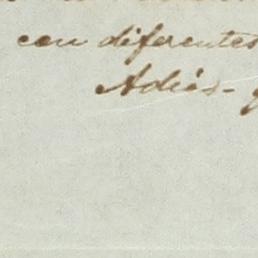 con diferentes
Adios-